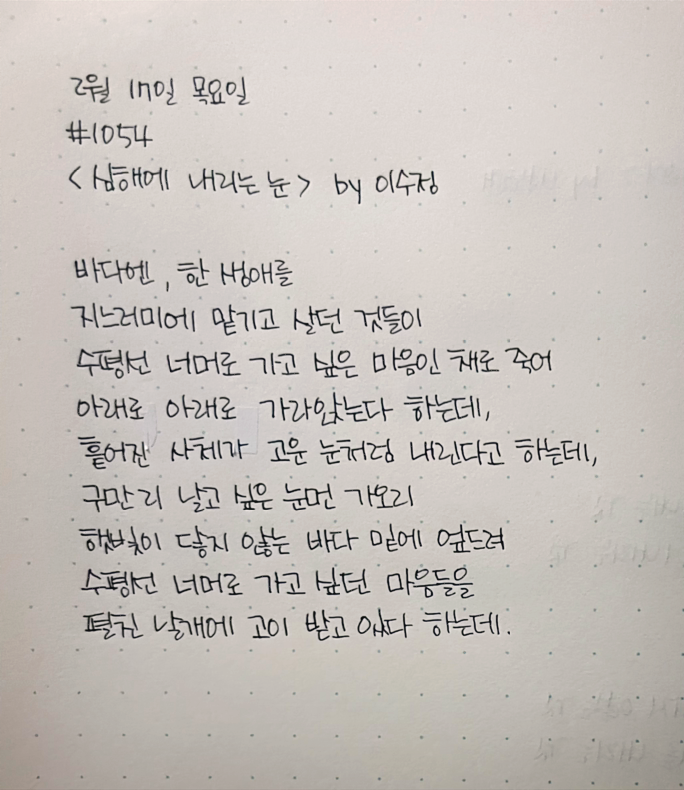 2월 17일 목요일
#1054
<심해에 내리는 눈> by 이수정
바다엔, 한 생애를
지느러미에 맡기고 살던 것들이
수평선 너머로 가고 싶은 마음인 채로 죽어
아래로 아래로 가라앉는다 하는데,
흩어진 사체가 고운 눈처럼 내린다고 하는데,
구만리 날고 싶은 눈먼 가오리
햇빛이 닿지 않는 바다 밑에 엎드려
수평선 너머로 가고 싶던 마음들을
펼친 날개에 고이 받고 있다 하는데.